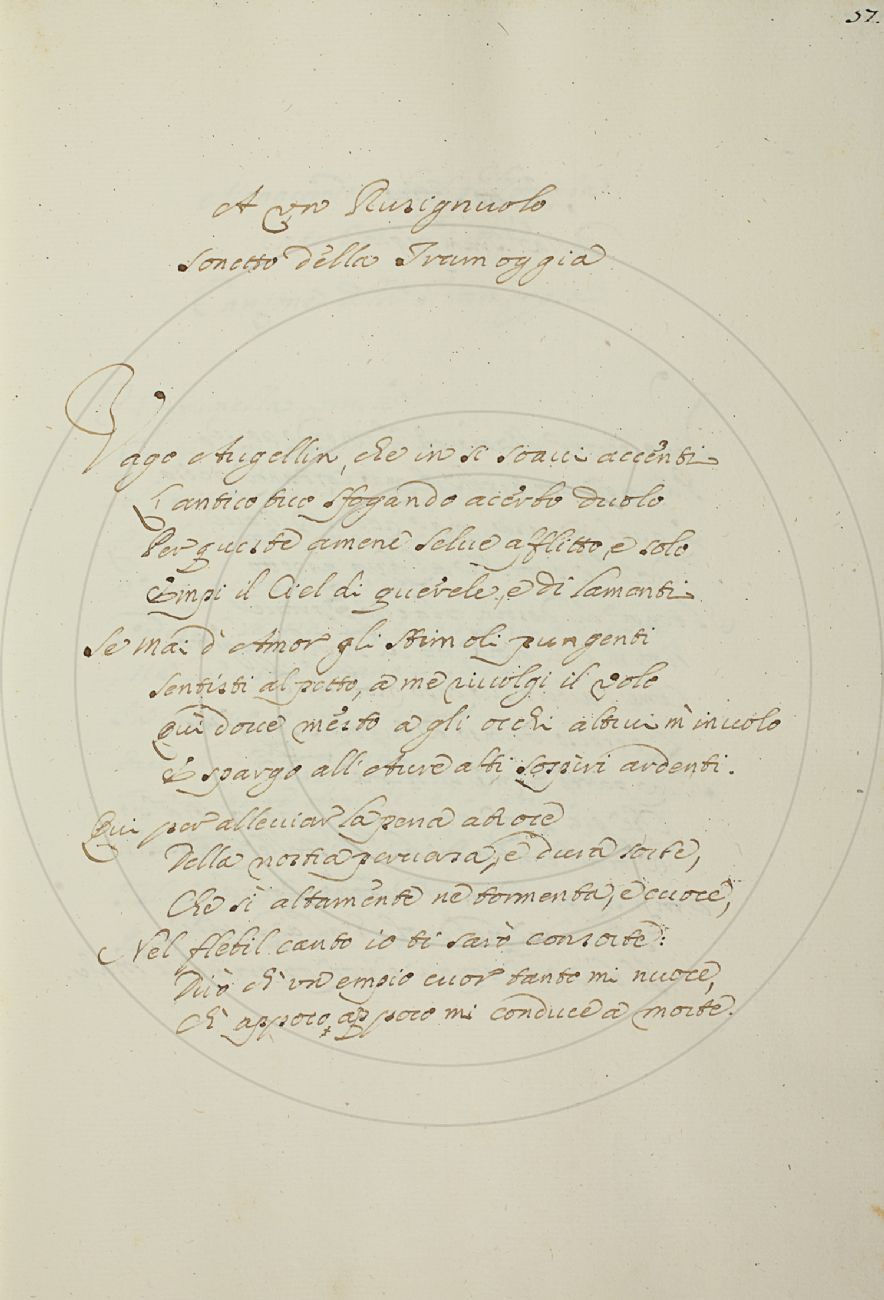 57.
A vn Rusignuolo
Sonetto della Tramoggia
Vago Augellin, che in si soaui accenti
L'antico tuo sfogando acerbo duolo
Per queste amene selue afflitto, e solo
Empi il Ciel di querele, e di lamenti
Se mai d'Amor gli stimoli pungenti
Sentisti al petto, a me riuolgi il volo
Qui doue mesto a gli occhi altrui m'inuolo
E spargo all'Aure alti sospiri ardenti.
Qui per alleuiar la pena atroce
Della nostra peruersa, e dura sorte,
Che sì altamente ne tormenta, e cuoce,
Nel flebil canto io ti sarò consorte:
Dirò ch'vn empio cuor tanto mi nuoce,
Ch'appoco appoco mi conduce a morte.